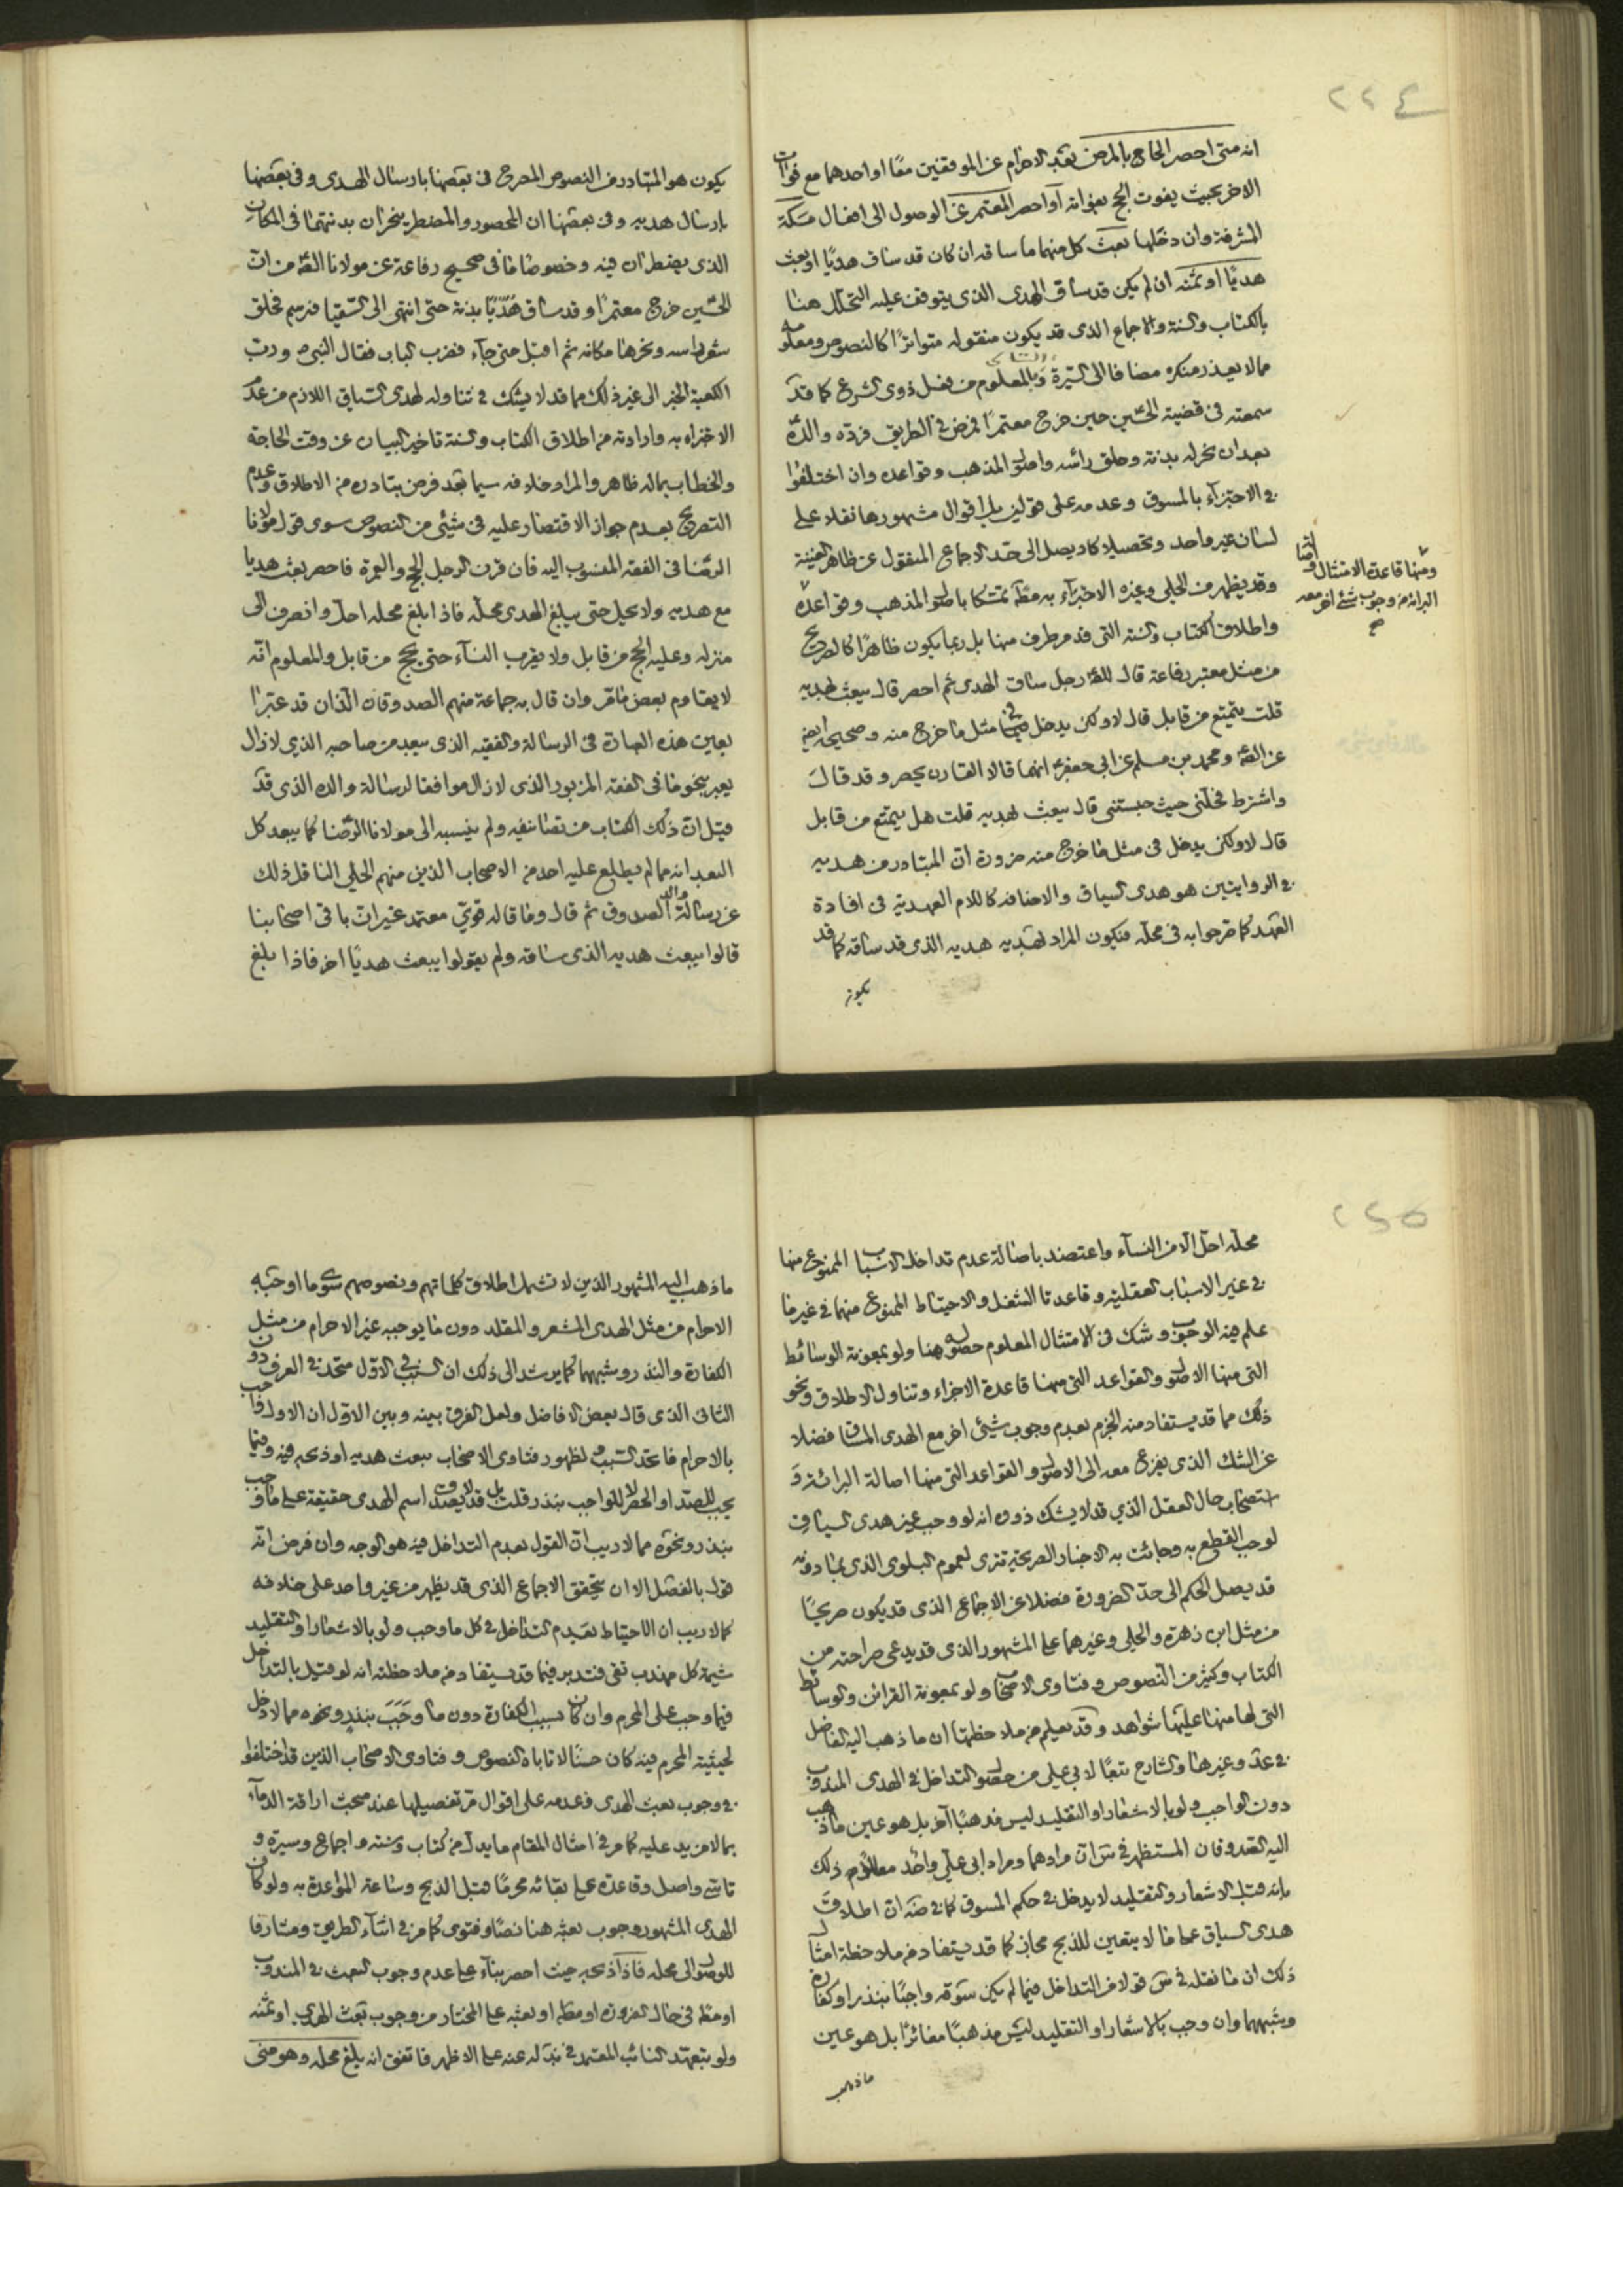 ٢٢٤
انه متى احصر الحاج بالمرض بعد الاحرام عن الموقفين معًا او احدهما مع فوات
الاخر بحيث يفوت الحج بفواته او احصر المعتمر عن الوصول الى افعال مكة
المشرفة وان دخلها بعث كل منهما ما ساقه ان كان قد ساق هديًا او بعث
هديًا او ثمنه ان لم يكن قد ساق الهدى الذى يتوقف عليه التحلل هنا
بالكتاب والسنة والاجماع الذى قد يكون منقوله متواترًا كالنصوص ومعلومه
مما لا يعذر منكره مضافا الى السيرة وبالمعلوم من فعل ذوى الشرع كما قد
سمعته فى قضية الحسين حين خرج معتمرًا فمرض فى الطريق فرده والده
بعد ان نحر له بدنة وحلق رأسه واصول المذهب وقواعده وان اختلفوا
فى الاجتزاء بالمسوق وعدمه على قولين بل اقوال مشهورها نقلا على
لسان غير واحد وتحصيلا كاد يصل الى حد الاجماع المنقول عن ظاهر الغنية
وقد يظهر من الحلي وغيره الاجتزاء به مطلقا تمسكا باصول المذهب وقواعده
ومنها قاعدة الامتثال واصالة
البرائة من وجوب شئ اخر معه
صح
واطلاق الكتاب والسنة التى قد مر طرف منها بل ربما يكون ظاهرًا كالصريح
من مثل معتبر رفاعة قال للصادق رجل ساق الهدى ثم احصر قال يبعث بهديه
قلت يتمتع من قابل قال لا ولكن يدخل فى مثل ما خرج منه وصحيحه ايضا
عن الصادق ومحمد بن مسلم عن ابى جعفر انهما قالا القارن يحصر وقد قال
واشترط فحلنى حيث حبستنى قال يبعث بهديه قلت هل يتمتع من قابل
قال لا ولكن يدخل فى مثل ما خرج منه ضرورة ان المتبادر من هديه
فى الروايتين هو هدى السياق والاضافة كاللام العهدية فى افادة
العهد كما صرحوا به فى محله فيكون المراد بهديه هديه الذى قد ساقه كما قد
يكون
يكون هو المتبادر من النصوص المصرح فى بعضها بارسال الهدى وفى بعضها
بارسال هديه وفى بعضها ان المحصور والمضطر ينحران بدنتهما فى المكان
الذى يضطران فيه وخصوصا ما فى صحيح رفاعة عن مولانا الصادق من ان
الحسين خرج معتمرًا وقد ساق هديًا بدنة حتى انتهى الى السقيا فبرسم فحلق
شعر راسه ونحرها مكانه ثم اقبل حتى جاء فضرب الباب فقال النبى ورب
الكعبة الخبر الى غير ذلك مما قد لا يشك فى تناوله لهدى السياق اللازم من عدم
الاجتزاء به وارادته من اطلاق الكتاب والسنة تاخير البيان عن وقت الحاجة
والخطاب بماله ظاهر والمراد خلافه سيما بعد فرض تبادره من الاطلاق وعدم
التصريح بعدم جواز الاقتصار عليه فى شئ من النصوص سوى قول مولانا
الرضا فى الفقه المنسوب اليه فان قرن الرجل الحج والعمرة فاحصر بعث هديا
مع هديه ولا يحل حتى يبلغ الهدى محله فاذا بلغ محله احل وانصرف الى
منزله وعليه الحج من قابل ولا يقرب النساء حتى يحج من قابل والمعلوم انه
لا يقاوم بعض ما مر وان قال به جماعة منهم الصدوقان الذان قد عبرا
بعين هذه العبارة فى الرسالة والفقيه الذى يبعد من صاحبه الذى لا زال
يعبر بنحو ما فى الفقه المزبور الذى لا زال موافقا لرسالة والده الذى قد
قيل ان ذلك الكتاب من تصانيفه ولم ينسبه الى مولانا الرضا كما يبعد كل
البعد انه مما لم يطلع عليه احد من الاصحاب الذين منهم الحلي الناقل ذلك
عن رسالة والد الصدوق ثم قال وما قاله قوى معتمد غير ان باقى اصحابنا
قالوا يبعث هديه الذى ساقه ولم يقولوا يبعث هديًا اخر فاذا بلغ
٢٢٥
محله احل الا من النساء واعتضد باصالة عدم تداخل الاسباب الممنوع منها
فى غير الاسباب العقلية وقاعدتا الشغل والاحتياط الممنوع منهما فى غير ما
علم فيه الوجوب وشك فى الامتثال المعلوم حصوله هنا ولو بمعونة الوسائط
التى منها الاصول والقواعد التى منها قاعدة الاجزاء وتناول الاطلاق ونحو
ذلك مما قد يستفاد منه الجزم بعدم وجوب شئ اخر مع الهدى المساق فضلا
عن الشك الذى يفزع معه الى الاصول والقواعد التى منها اصالة البرائة و
استصحاب حال العقل الذي قد لا يشك ذووه انه لو وجب غير هدى السياق
لوجب القطع به وجائت به الاخبار الصريحة تترى لعموم البلوى الذى بما دونه
قد يصل الحكم الى حد الضرورة فضلا عن الاجماع الذى قد يكون صريحًا
من مثل ابن زهرة والحلي وغيرهما على المشهور الذى قد يدعى صراحته من
الكتاب وكثير من النصوص وفتاوى الاصحاب ولو بمعونة القرائن والوسائط
التى لها منها عليها شواهد وقد يعلم من ملاحظتها ان ما ذهب اليه الفاضل
فى عد وغيرها والشارح تبعًا لابى على من حصول التداخل فى الهدى المندوب
دون الواجب ولو بالاشعار او التقليد ليس مذهبًا آخر بل هو عين ما ذهب
اليه الصدوقان المستظهر فى س ان مرادهما ومراد ابى على واحد معللا ذلك
بانه قبل الاشعار والتقليد لا يدخل فى حكم المسوق كما فى ضه ان اطلاق
هدى السياق على ما لا يتعين للذبح مجاز كما قد يستفاد من ملاحظة امثال
ذلك ان ما نقله فى س قولا من التداخل فيما لم يكن سوقه واجبًا بنذر او كفارة
وشبههما وان وجب بالاشعار او التقليد ليس مذهبًا مغائرًا بل هو عين
ما ذهب
ما ذهب اليه المشهور الذين لا تشمل اطلاق كلماتهم ونصوصهم سوى ما اوجبه
الاحرام من مثل الهدى المشعر والمقلد دون ما يوجبه غير الاحرام من مثل
الكفارة والنذر وشبههما كما يرشد الى ذلك ان السبب فى الاول متحد فى العرف دون
الثانى الذى قال بعض الافاضل ولعل الفرق بينه وبين الاول ان الاول واجب
بالاحرام فاتحد السبب ولظهور فتاوى الاصحاب ببعث هديه او ذبحه فيه وفيما
يجب للصد او الحصر لا للواجب بنذر قلت بل قد لا يصدق اسم الهدى حقيقة على ما وجب
بنذر ونحوه مما لا ريب ان القول بعدم التداخل فيه هو الوجه وان فرض انه
قول بالفصل الا ان يتحقق الاجماع الذى قد يظهر من غير واحد على خلافه
كما لا ريب ان الاحتياط بعدم التداخل فى كل ما وجب ولو بالاشعار او التقليد
شيمة كل مهذب تقى فتدبر فيما قد يستفاد من ملاحظته انه لو قيل بالتداخل
فيما وجب على المحرم وان كان بسبب الكفارة دون ما وجب بنذر ونحوه مما لا دخل
لحيثية المحرم فيه كان حسنًا لا تاباه النصوص وفتاوى الاصحاب الذين قد اختلفوا
فى وجوب بعث الهدى وعدمه على اقوال مر تفصيلها عند مبحث اراقة الدماء
بما لا مزيد عليه كما مر فى امثال المقام ما يدل من كتاب وسنة واجماع وسيرة و
تاسى واصل وقاعدة على بقائه محرمًا قبل الذبح وساعة المواعدة به ولو كان
الهدى المشهور وجوب بعثه هنا نصًا وفتوى كما مر فى اثناء الطريق ومشارفا
للوصول الى محله فاذا ذبحه حيث احصر بناء على عدم وجوب البعث فى المندوب
او مطلقا فى حال الضرورة او مطلقا او بعثه على المختار من وجوب بعث الهدى او ثمنه
ولو بتعهد النائب المعتمد فى بذله عنه على الاظهر فاتفق انه بلغ محله وهو منى